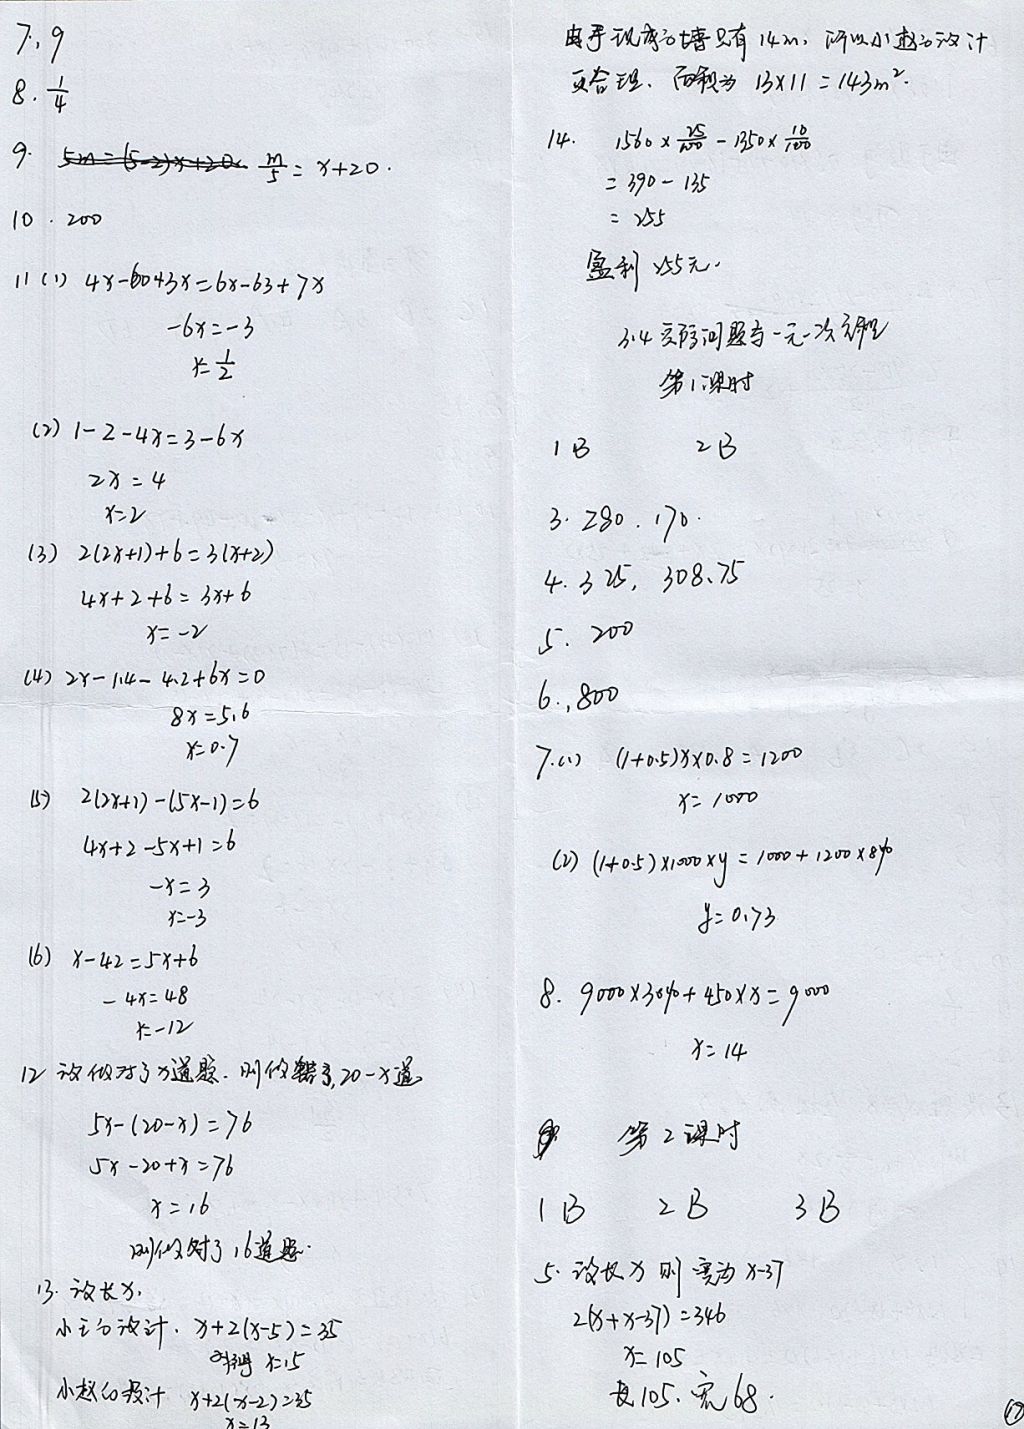 7. 9
8. 1/4
9. 5m=(5-2)x+20. m/5 = x+20.
10. 200
11 (1) 4x-60+3x=6x-63+7x
-6x=-3
x=1/2
(2) 1-2-4x=3-6x
2x=4
x=2
(3) 2(2x+1)+6=3(x+2)
4x+2+6=3x+6
x=-2
(4) 2x-1.4-4.2+6x=0
8x=5.6
x=0.7
(5) 2(2x+1)-(5x-1)=6
4x+2-5x+1=6
-x=3
x=-3
(6) x-42=5x+6
-4x=48
x=-12
12 设做对了x道题. 则做错了20-x道
5x-(20-x)=76
5x-20+x=76
x=16
则做对了16道题.
13. 设长x,
小王的设计. x+2(x-5)=35
解得 x=15
小赵的设计 x+2(x-2)=35
x=13
由于现成的墙只有14m, 所以小赵的设计
更合理. 面积为 13×11=143m².
14. 1560×25/100-1350×10/100
=390-135
=255
盈利255元.
3.4 实际问题与一元一次方程
第1课时
1 B 2 B
3. 280. 170.
4. 325, 308.75
5. 200
6. 800
7.(1) (1+0.5)x×0.8=1200
x=1000
(2) (1+0.5)×1000×y=1000+1200×8%
y=0.73
8. 9000×30%+450×x=9000
x=14
第2课时
1 B 2 B 3 B
5. 设长x则宽为x-37
2(x+x-37)=346
x=105
长105. 宽68.
17